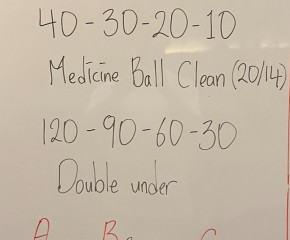 40-30-20-10
Medicine Ball Clean (20/14)
120-90-60-30
Double under
A B C